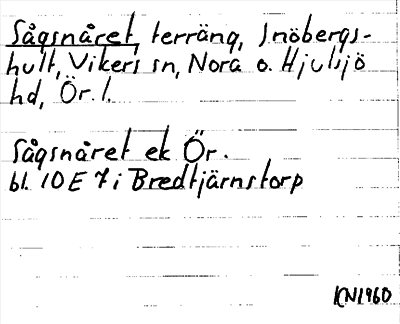 Sågsnåret, terräng, Snöbergs-
hult, Vikers sn, Nora o. Hjulsjö
hd, Ör. l.
Sågsnåret ek Ör.
bl. 10 E 7 i Bredtjärnstorp
KN1960